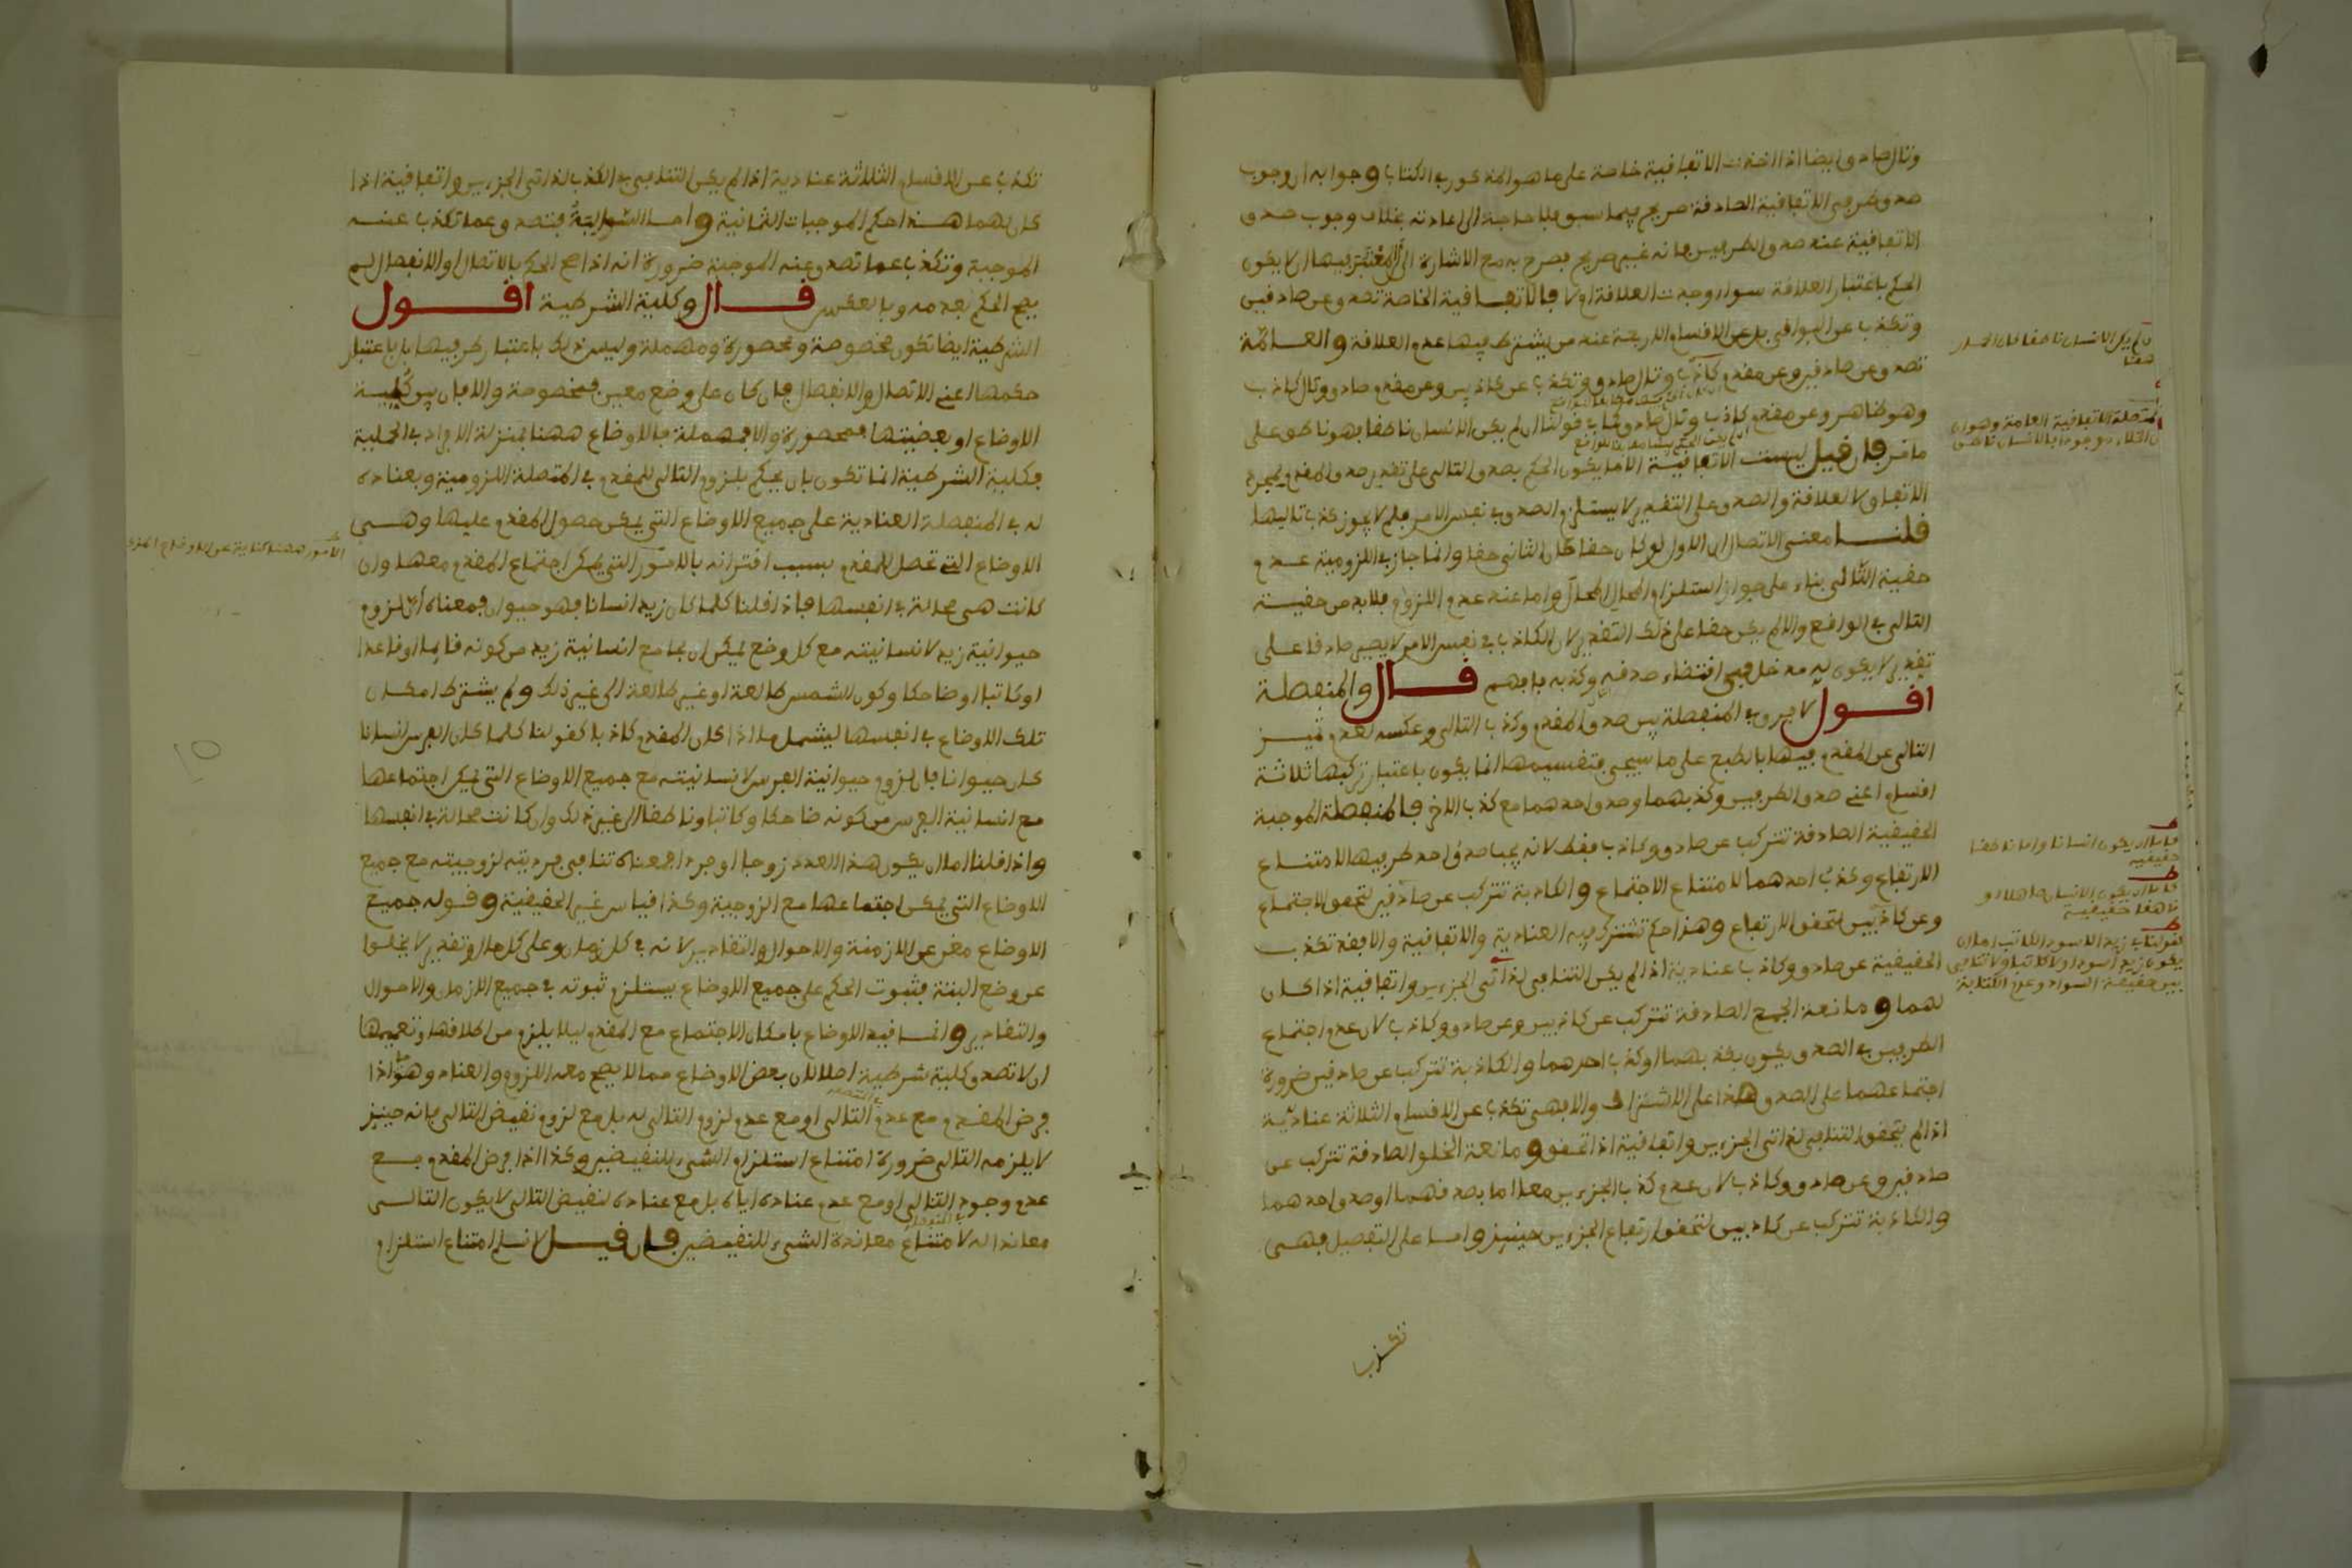 وتال صادق ايضا اذا اخذت الاتفاقية خاصة على ما هو المذكور في الكتاب وجوابه ان وجوب
صدق طرفي الاتفاقية الصادقة صريح فيما سبق بلا حاجة الى اعادته بخلاف وجوب صدق
الاتفاقية عند صدق الطرفين فانه غير صريح فصرح به مع الاشارة الى ان المعتبر فيها ان يكون
الحكم باعتبار العلاقة سواء وجدت العلاقة او لا فالاتفاقية الخاصة تصدق عن صادقين
وتكذب عن البواقي بل عن الاقسام الاربعة عند من يشترط فيها عدم العلاقة والعامة
تصدق عن صادقين وعن مقدم كاذب وتال صادق وتكذب عن كاذبين وعن مقدم صادق وتال كاذب
وهو ظاهر وعن مقدم كاذب وتال صادق قولنا ان لم يكن الانسان ناطقا فهو ناطق على
ما مر فان قيل ليست الاتفاقية الا ما يكون الحكم بصدق التالي على تقدير صدق المقدم لمجرد
الاتفاق لا لعلاقة والصدق على التقدير لا يستلزم الصدق في نفس الامر فلم لا يجوز كذب تاليها
قلنا معنى الاتصال ان الاول لو كان حقا كان الثاني حقا وانما جاز في اللزومية عدم
حقية التالي بناء على جواز استلزام المحال المحال واما عند عدم اللزوم فلا بد من حقية
التالي في الواقع والا لم يكن حقا على ذلك التقدير لان الكاذب في نفس الامر لا يصير صادقا على
تقدير لا يكون له مدخل في اقتضاء صدقه وكذبه فافهم قال والمنفصلة
اقول لا فرق في المنفصلة بين صدق المقدم وكذب التالي وعكسه لعدم تميز
التالي عن المقدم فيها بالطبع على ما سيجيء فتقسيمها انما يكون باعتبار تركبها ثلاثة
اقسام اعني صدق الطرفين وكذبهما وصدق احدهما مع كذب الاخر فالمنفصلة الموجبة
الحقيقية الصادقة تتركب عن صادق وكاذب فقط لانه يجب صدق احد طرفيها لامتناع
الارتفاع وكذب احدهما لامتناع الاجتماع والكاذبة تتركب عن صادقين لتحقق الاجتماع
وعن كاذبين لتحقق الارتفاع وهذا حكم تشترك فيه العنادية والاتفاقية والا فقد تكذب
الحقيقية عن صادق وكاذب عنادية اذا لم يكن التنافي لذاتي الجزءين واتفاقية اذا كان
لهما ومانعة الجمع الصادقة تتركب عن كاذبين وعن صادق وكاذب لان عدم اجتماع
الطرفين في الصدق يكون بكذبهما او كذب احدهما والكاذبة تتركب عن صادقين ضرورة
اجتماعهما على الصدق هذا على الاشتراك والا فهي تكذب عن الاقسام الثلاثة عنادية
اذا لم يتحقق التنافي لذاتي الجزءين واتفاقية اذا تحقق ومانعة الخلو الصادقة تتركب عن
صادقين وعن صادق وكاذب لان عدم كذب الجزءين معا اما بصدقهما او صدق احدهما
والكاذبة تتركب عن كاذبين لتحقق ارتفاع الجزءين حينئذ واما على التفصيل فهي
تكذب
تكذب عن الاقسام الثلاثة عنادية اذا لم يكن التنافي في الكذب لذاتي الجزءين واتفاقية اذا
كان لهما هذا حكم الموجبات الثمانية واما السوالب فتصدق عما تكذب عنه
الموجبة وتكذب عما تصدق عنه الموجبة ضرورة انه اذا صح الحكم بالاتصال او الانفصال لم
يصح الحكم بعدمه وبالعكس قال وكلية الشرطية اقول
الشرطية ايضا تكون مخصوصة ومحصورة ومهملة وليس ذلك باعتبار طرفيها بل باعتبار
حكمها اعني الاتصال والانفصال فان كان على وضع معين فمخصوصة والا فان بين كلية
الاوضاع او بعضيتها فمحصورة والا فمهملة فالاوضاع ههنا بمنزلة الافراد في الحملية
فكلية الشرطية انما تكون بان يحكم بلزوم التالي للمقدم في المتصلة اللزومية وبعناده
له في المنفصلة العنادية على جميع الاوضاع التي يمكن حصول المقدم عليها وهي
الاوضاع التي تحصل للمقدم بسبب اقترانه بالامور التي يمكن اجتماع المقدم معها وان
كانت هي محالة في انفسها فاذا قلنا كلما كان زيد انسانا فهو حيوان فمعناه ان لزوم
حيوانية زيد لانسانيته مع كل وضع يمكن ان يجامع انسانية زيد من كونه قايما او قاعدا
او كاتبا او ضاحكا وكون الشمس طالعة او غير طالعة الى غير ذلك ولم يشترط امكان
تلك الاوضاع في انفسها ليشمل ما اذا كان المقدم كاذبا كقولنا كلما كان الفرس انسانا
كان حيوانا فان لزوم حيوانية الفرس لانسانيته مع جميع الاوضاع التي يمكن اجتماعها
مع انسانية الفرس من كونه ضاحكا وكاتبا وناطقا الى غير ذلك وان كانت محالة في انفسها
واذا قلنا اما ان يكون هذا العدد زوجا او فردا فمعناه تنافي فرديته لزوجيته مع جميع
الاوضاع التي يمكن اجتماعها مع الزوجية وكذا قياس غير الحقيقية وقوله جميع
الاوضاع مغن عن الازمنة والاحوال والتقادير لانه في كل زمان وعلى كل حال وتقدير لا يخلوا
عن وضع البتة فثبوت الحكم على جميع الاوضاع يستلزم ثبوته في جميع الازمان والاحوال
والتقادير وانما قيد الاوضاع بامكان الاجتماع مع المقدم ليلا يلزم من اطلاقها وتعميمها
ان لا تصدق كلية شرطية اصلا لان بعض الاوضاع مما لا يصح معه اللزوم والعناد وهو ما اذا
فرض المقدم مع عدم التالي او مع عدم لزوم التالي له بل مع لزوم نقيض التالي فانه حينئذ
لا يلزمه التالي ضرورة امتناع استلزام الشيء للنقيضين وكذا اذا فرض المقدم مع
عدم وجود التالي او مع عدم عناده اياه بل مع عناده لنقيض التالي لا يكون التالي
معاندا له لامتناع معاندة الشيء للنقيضين فان قيل لا نسلم امتناع استلزام